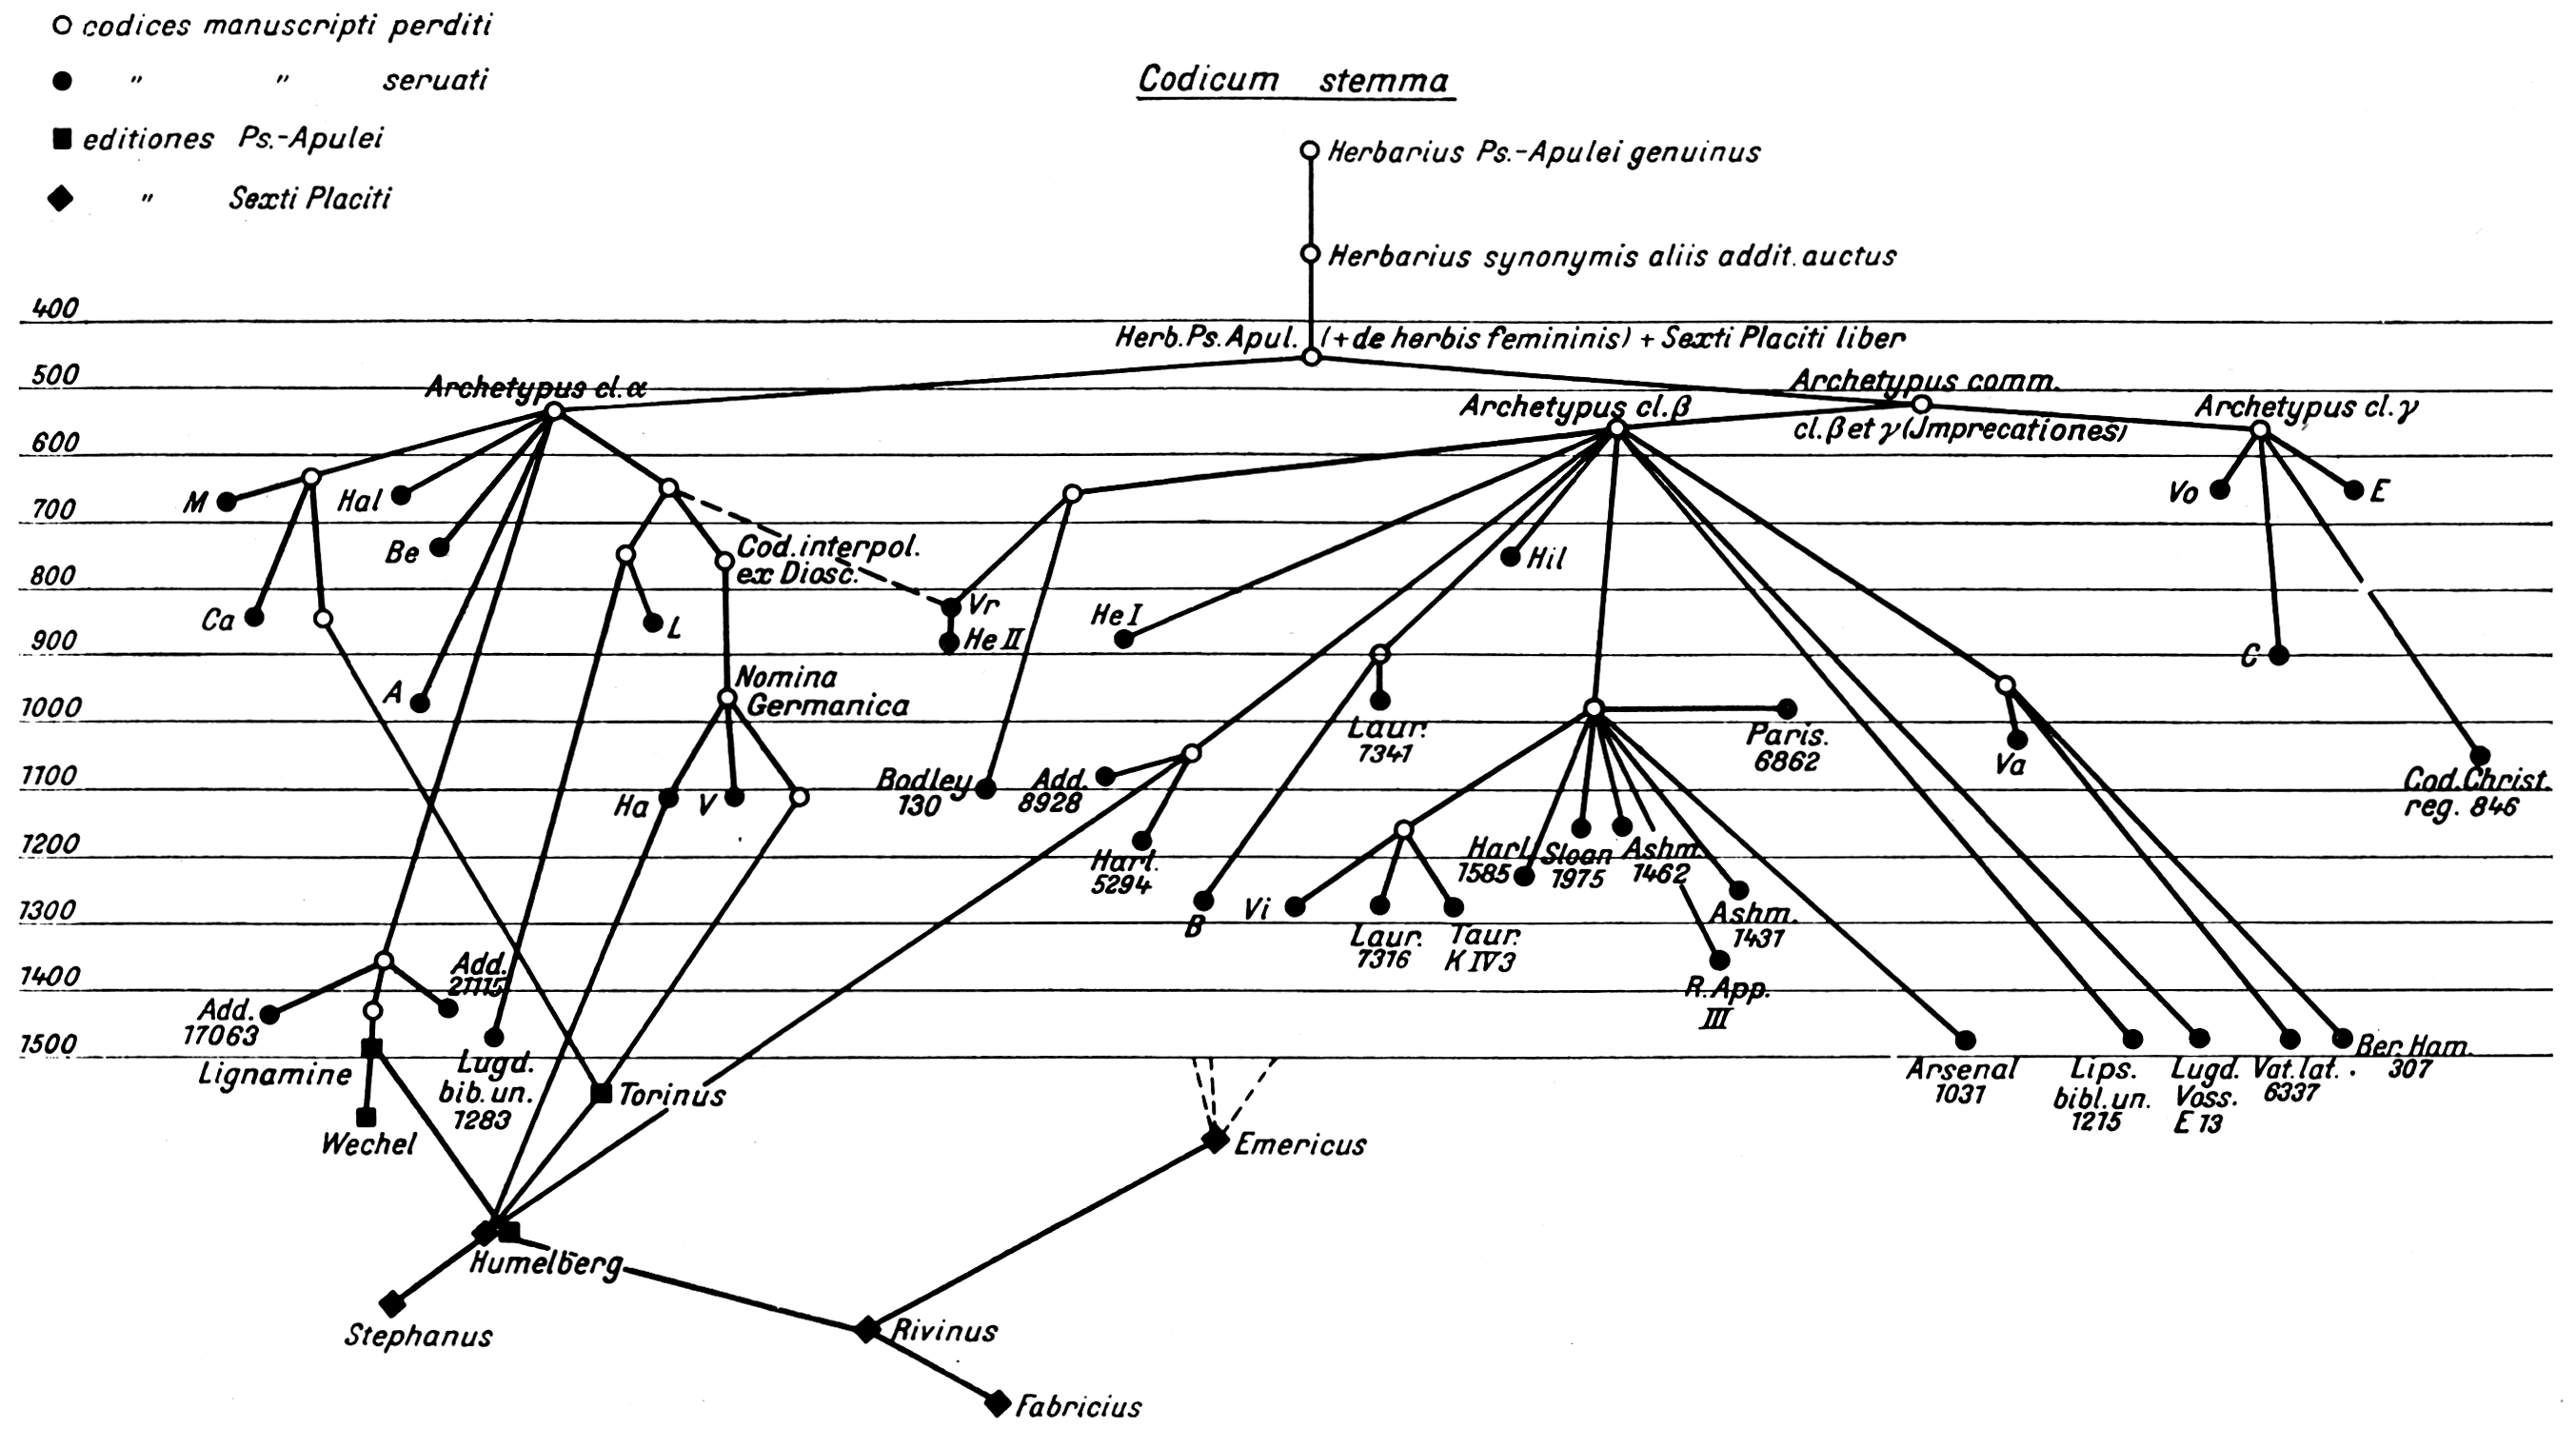 codices manuscripti perditi
" " seruati
editiones Ps.-Apulei
" Sexti Placiti
Codicum stemma
Herbarius Ps.-Apulei genuinus
Herbarius synonymis aliis addit. auctus
400
Herb. Ps. Apul. (+ de herbis femininis) + Sexti Placiti liber
500
Archetypus cl. α
Archetypus comm.
Archetypus cl. β
Archetypus cl. γ
cl. β et γ (Jmprecationes)
600
M
Hal
Vo
E
700
Be
Cod. interpol.
ex Diosc.
Hil
800
Ca
L
Vr
He II
He I
900
C
A
Nomina
Germanica
1000
Laur.
7341
Paris.
6862
Va
1100
Ha
V
Bodley
130
Add.
8928
Cod. Christ.
reg. 846
1200
Harl.
5294
Harl.
1585
Sloan
1975
Ashm.
1462
1300
B
Vi
Laur.
7316
Taur.
K IV 3
Ashm.
1431
1400
Add.
21115
R. App.
III
Add.
17063
1500
Lignamine
Lugd.
bib. un.
1283
Torinus
Arsenal
1031
Lips.
bibl. un.
1215
Lugd.
Voss.
E 13
Vat. lat.
6337
Ber. Ham.
307
Wechel
Emericus
Humelberg
Stephanus
Rivinus
Fabricius